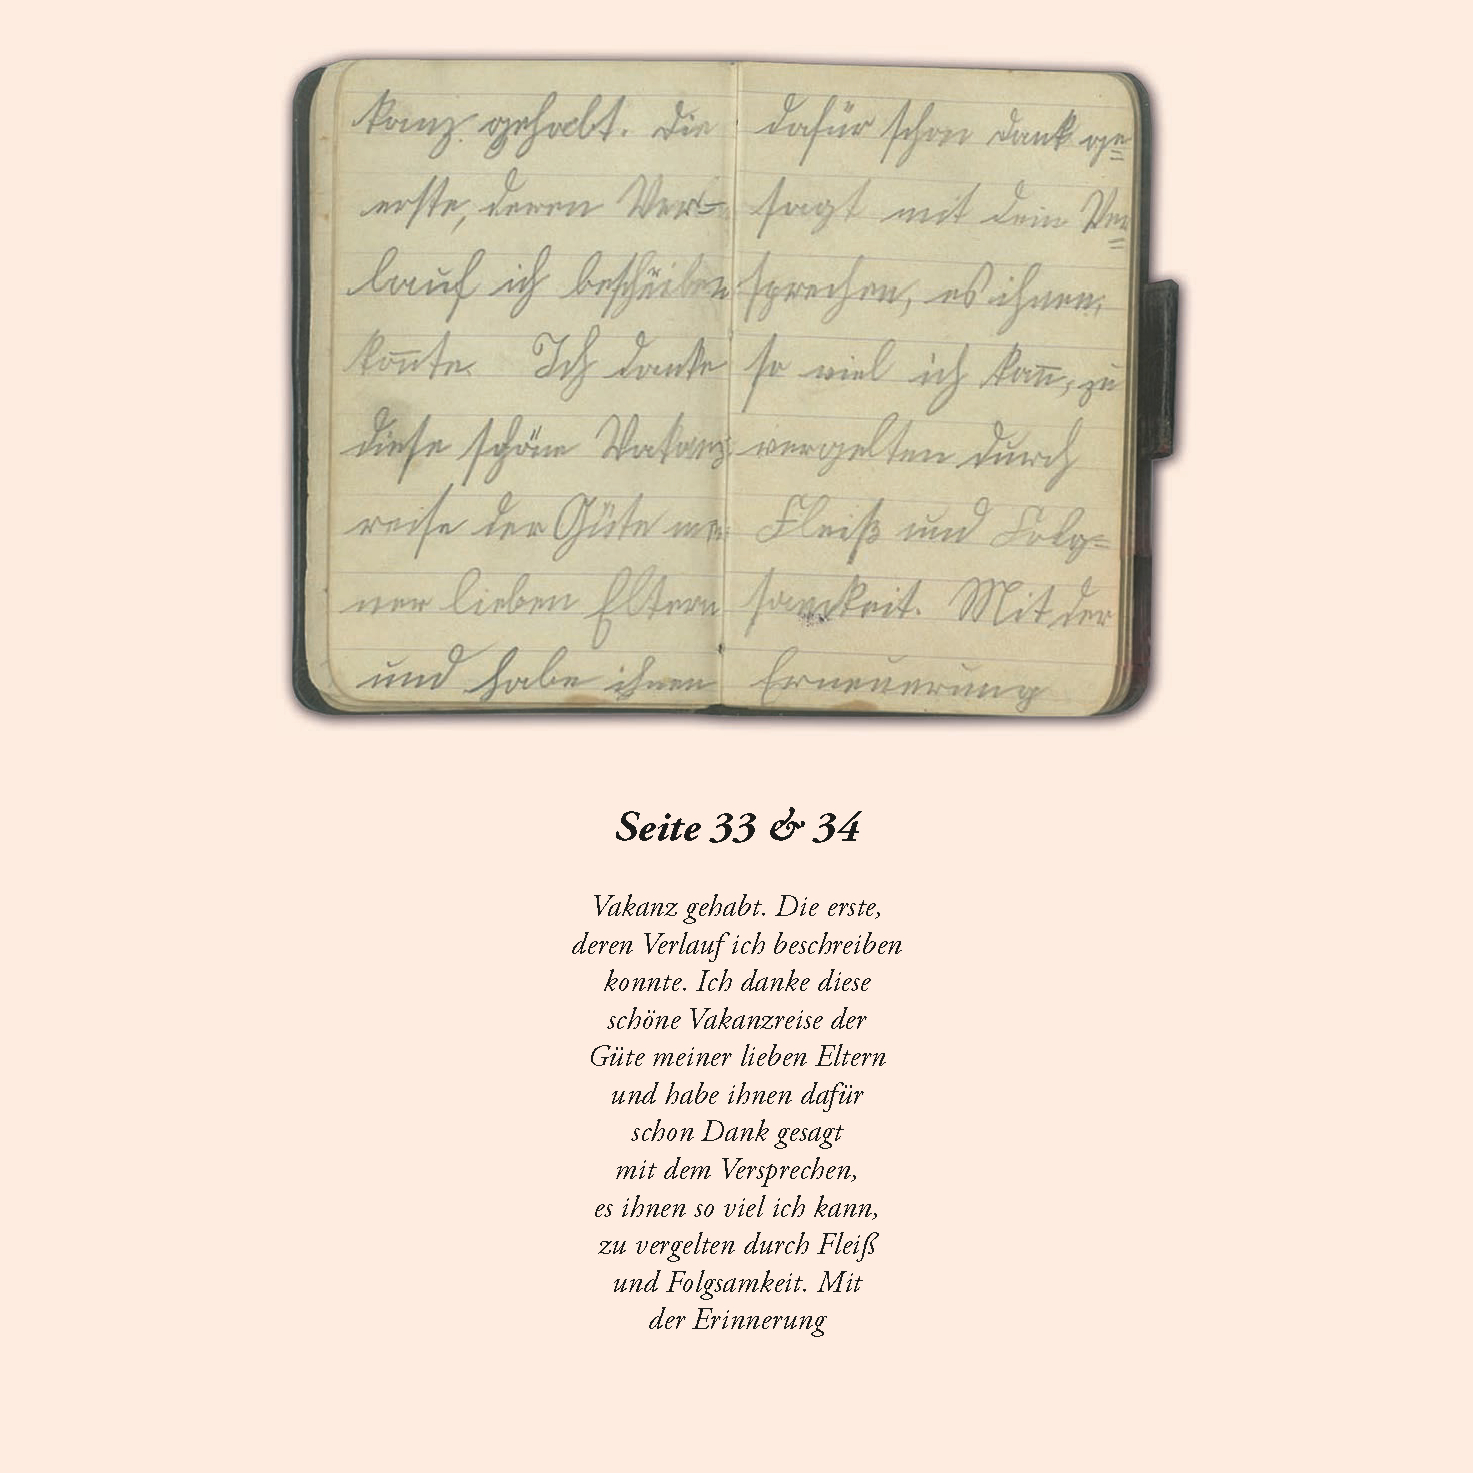 kanz gehabt. Die
erste, deren Ver-
lauf ich beschreiben
kon̄te. Ich danke
diese schöne Vakanz
reise der Güte mei
ner lieben Eltern
und habe ihnen
dafür schon Dank ge=
sagt mit dem Ver=
sprechen, es ihnen,
so viel ich kan̄, zu
vergelten durch
Fleiß und Folg=
samkeit. Mit der
Erneuerung
Seite 33 & 34
Vakanz gehabt. Die erste,
deren Verlauf ich beschreiben
konnte. Ich danke diese
schöne Vakanzreise der
Güte meiner lieben Eltern
und habe ihnen dafür
schon Dank gesagt
mit dem Versprechen,
es ihnen so viel ich kann,
zu vergelten durch Fleiß
und Folgsamkeit. Mit
der Erinnerung